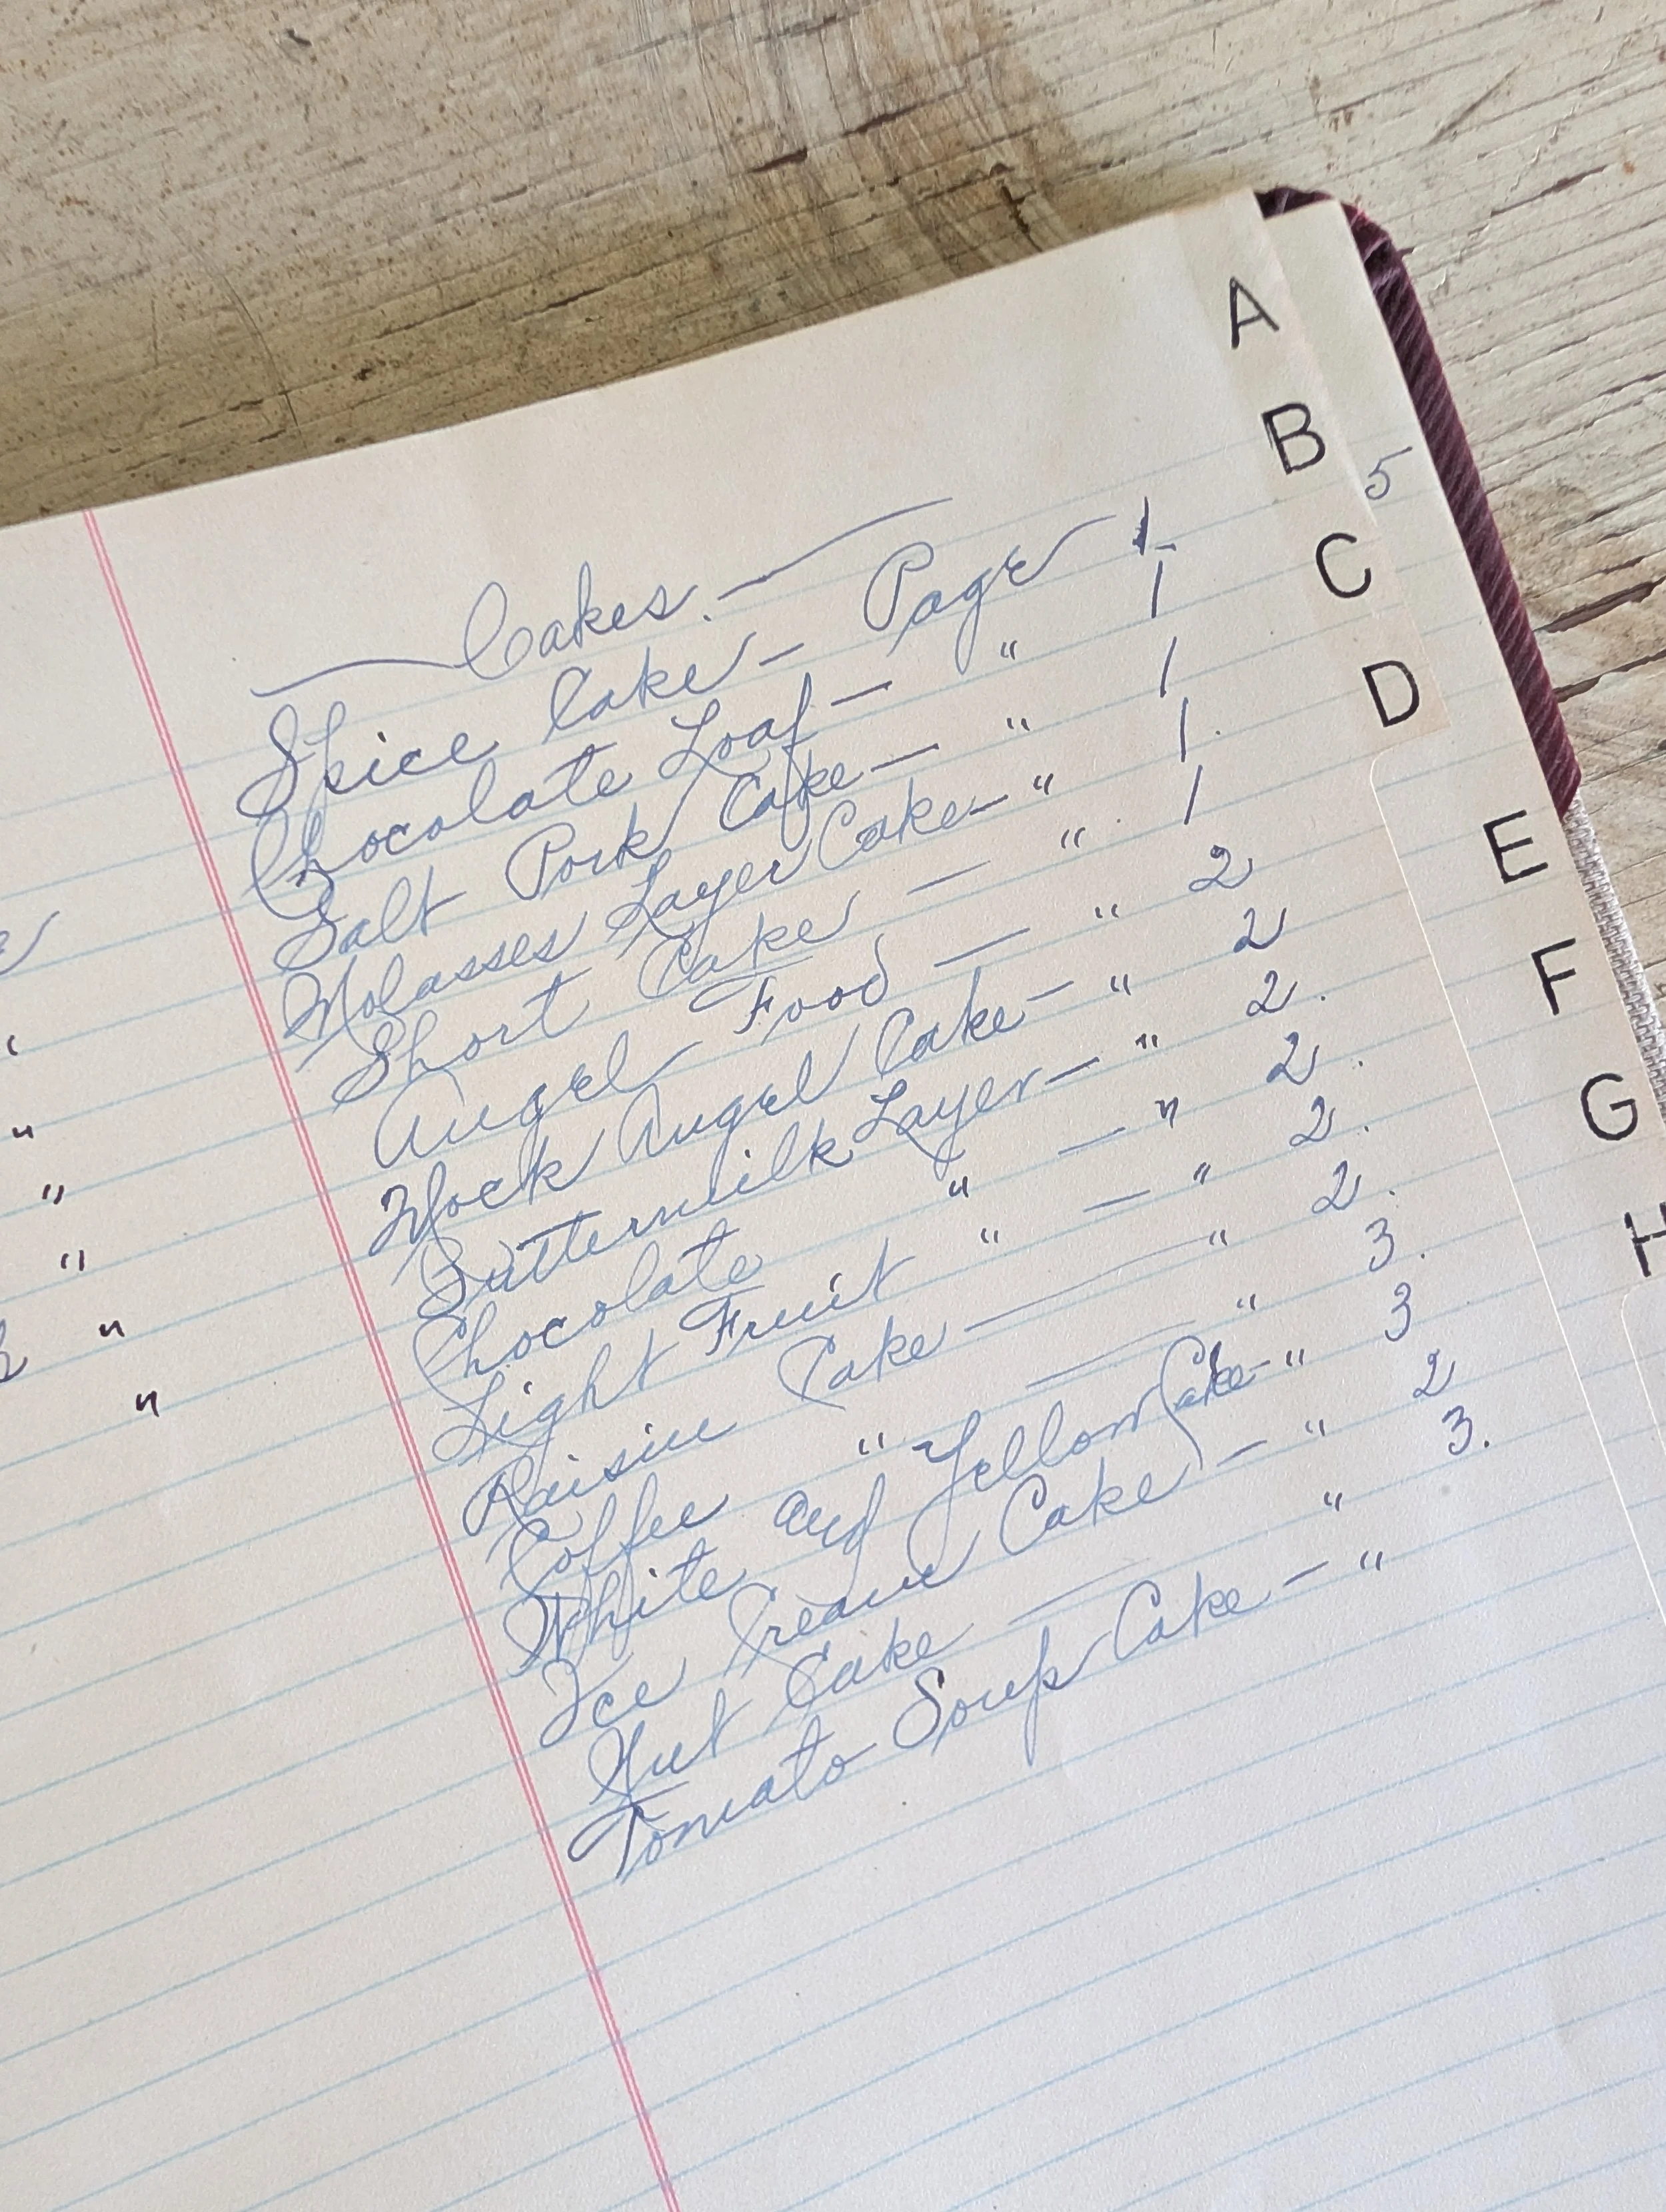 Cakes.
Spice Cake — Page 1
Chocolate Loaf — " 1
Salt Pork Cake — " 1
Molasses Layer Cake — " 1.
Short Cake — " 1
Angel Food — " 2
Mock Angel Cake — " 2
Buttermilk Layer — " 2.
Chocolate " — " 2.
Light Fruit " — " 2.
Raisin Cake — " 2.
Coffee " — " 3.
White and Yellow Cake — " 3
Ice Cream Cake — " 2
Nut Cake — " 3.
Tomato Soup Cake — "
5
A
B
C
D
E
F
G
H